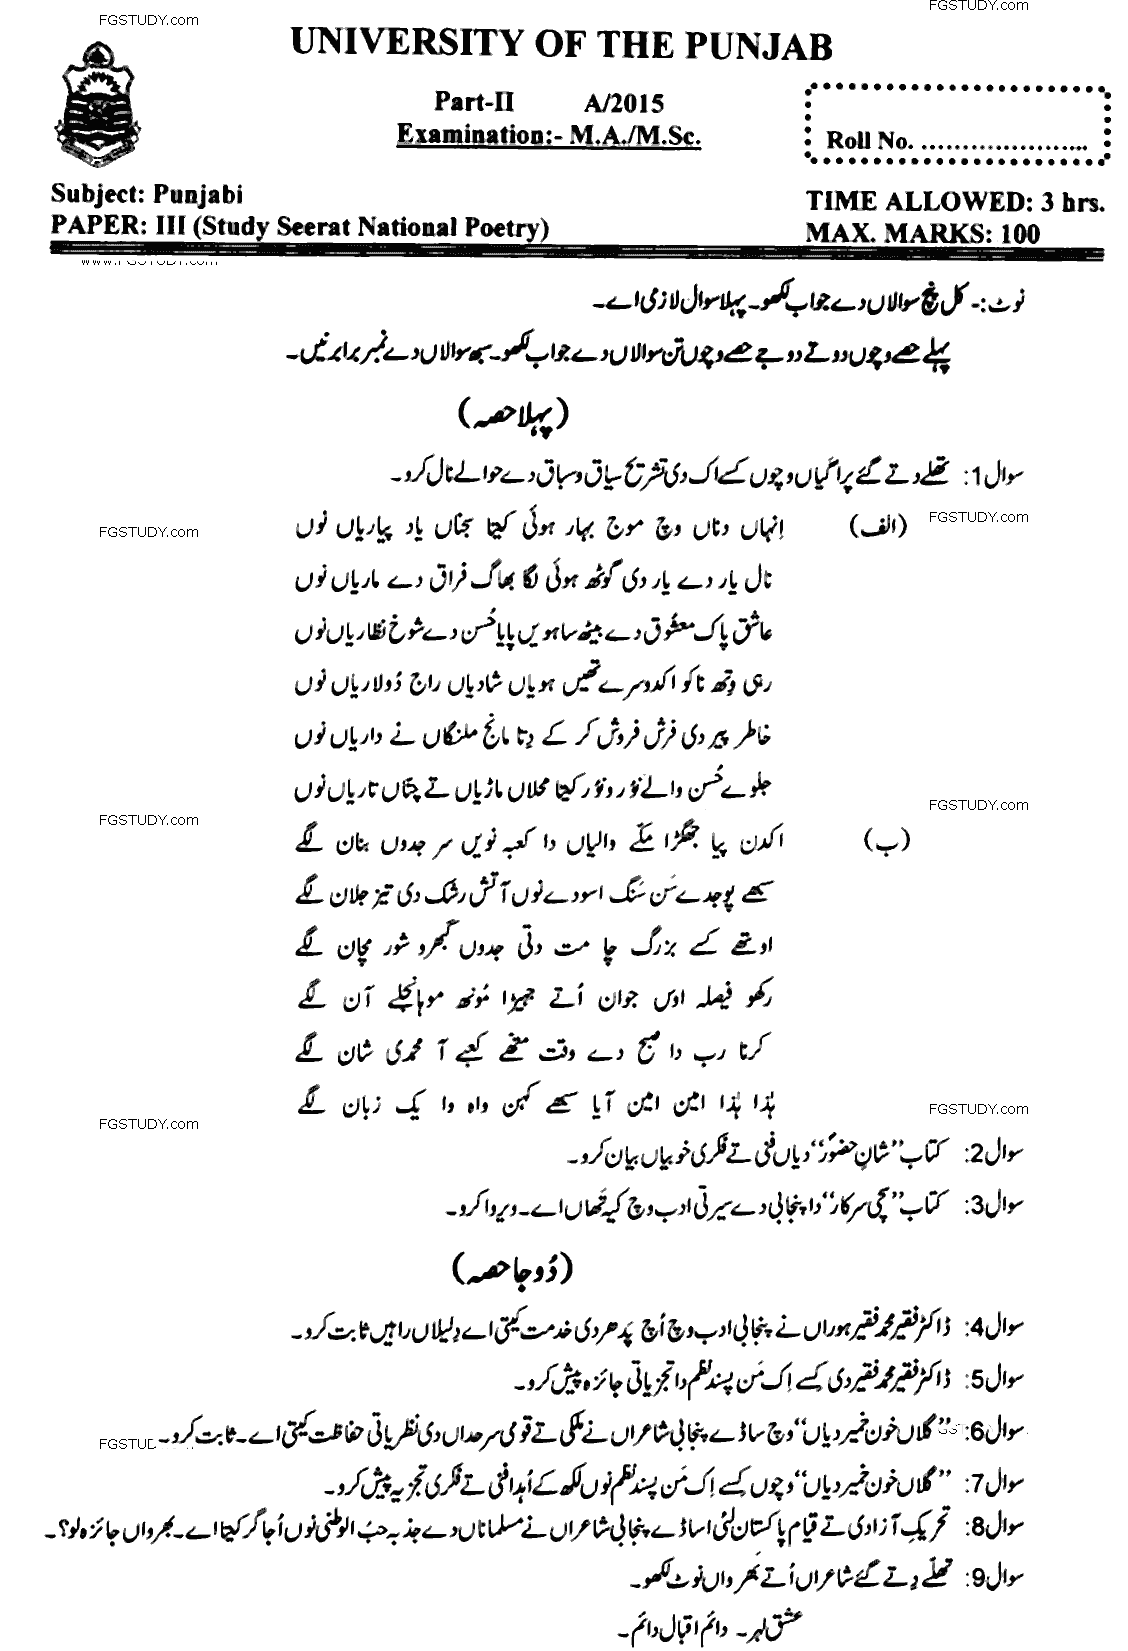 FGSTUDY.com
FGSTUDY.com
UNIVERSITY OF THE PUNJAB
Part-II A/2015
Examination:- M.A./M.Sc.
Roll No. ......................
Subject: Punjabi
PAPER: III (Study Seerat National Poetry)
TIME ALLOWED: 3 hrs.
MAX. MARKS: 100
www.FGSTUDY.com
نوٹ:۔ کل پنج سوالاں دے جواب لکھو۔ پہلا سوال لازمی اے۔
پہلے حصے وچوں دو تے دوجے حصے وچوں تن سوالاں دے جواب لکھو۔ سبھ سوالاں دے نمبر برابر نیں۔
(پہلا حصہ)
سوال 1: تھلے دتے گئے پراگیاں وچوں کسے اک دی تشریح سیاق و سباق دے حوالے نال کرو۔
FGSTUDY.com
FGSTUDY.com
(الف) اِنہاں دناں وچ موج بہار ہوئی کیتا سجناں یاد پیاریاں نوں
نال یار دے یار دی گوٹھ ہوئی لگا بھاگ فراق دے ماریاں نوں
عاشق پاک معشوق دے بیٹھ ساہویں پایا حُسن دے شوخ نظاریاں نوں
رہی وتھ ناکو اکدوسرے تھیں ہویاں شادیاں راج دُولاریاں نوں
خاطر پیر دی فرش فروش کر کے دِتا مانج ملنگاں نے داریاں نوں
جلوے حُسن والے نوُر و نوُر کیتا محلاں ماڑیاں تے چتاں تاریاں نوں
FGSTUDY.com
FGSTUDY.com
(ب) اکدن پیا جھگڑا مکے والیاں دا کعبہ نویں سر جدوں بنان لگے
سبھے پوجدے سَن سَنگ اسودے نوں آتش رشک دی تیز جلان لگے
اوتھے کسے بزرگ چا مت دتی جدوں گبھرو شور مچان لگے
رکھو فیصلہ اوس جوان اُتے جیہڑا مُونھ موہانجلے آن لگے
کرنا رب دا صبح دے وقت متھے کعبے آ محمدی شان لگے
ہٰذا ہٰذا امین امین آیا سبھے کہن واہ وا یک زبان لگے
FGSTUDY.com
FGSTUDY.com
سوال 2: کتاب ”شانِ حضورؐ“ دیاں فنی تے فکری خوبیاں بیان کرو۔
سوال 3: کتاب ”سچی سرکار“ دا پنجابی دے سیرتی ادب وچ کیہ تھاں اے۔ ویروا کرو۔
(دُوجا حصہ)
سوال 4: ڈاکٹر فقیر محمد فقیر ہوراں نے پنجابی ادب وچ اُچ پدھر دی خدمت کیتی اے دلیلاں راہیں ثابت کرو۔
سوال 5: ڈاکٹر فقیر محمد فقیر دی کسے اِک مَن پسند نظم دا تجزیاتی جائزہ پیش کرو۔
سوال 6: ”گلاں خون خمیر دیاں“ وچ ساڈے پنجابی شاعراں نے ملکی تے قومی سرحداں دی نظریاتی حفاظت کیتی اے۔ ثابت کرو۔
سوال 7: ”گلاں خون خمیر دیاں“ وچوں کسے اِک مَن پسند نظم نوں لکھ کے اُہدا فنی تے فکری تجزیہ پیش کرو۔
سوال 8: تحریک آزادی تے قیام پاکستان لئی اساڈے پنجابی شاعراں نے مسلماناں دے جذبہ حبُ الوطنی نوں اُجاگر کیتا اے۔ بھرواں جائزہ لو؟۔
سوال 9: تھلّے دِتے گئے شاعراں اُتے بھرواں نوٹ لکھو۔
عشق لہر۔ دائم اقبال دائم۔